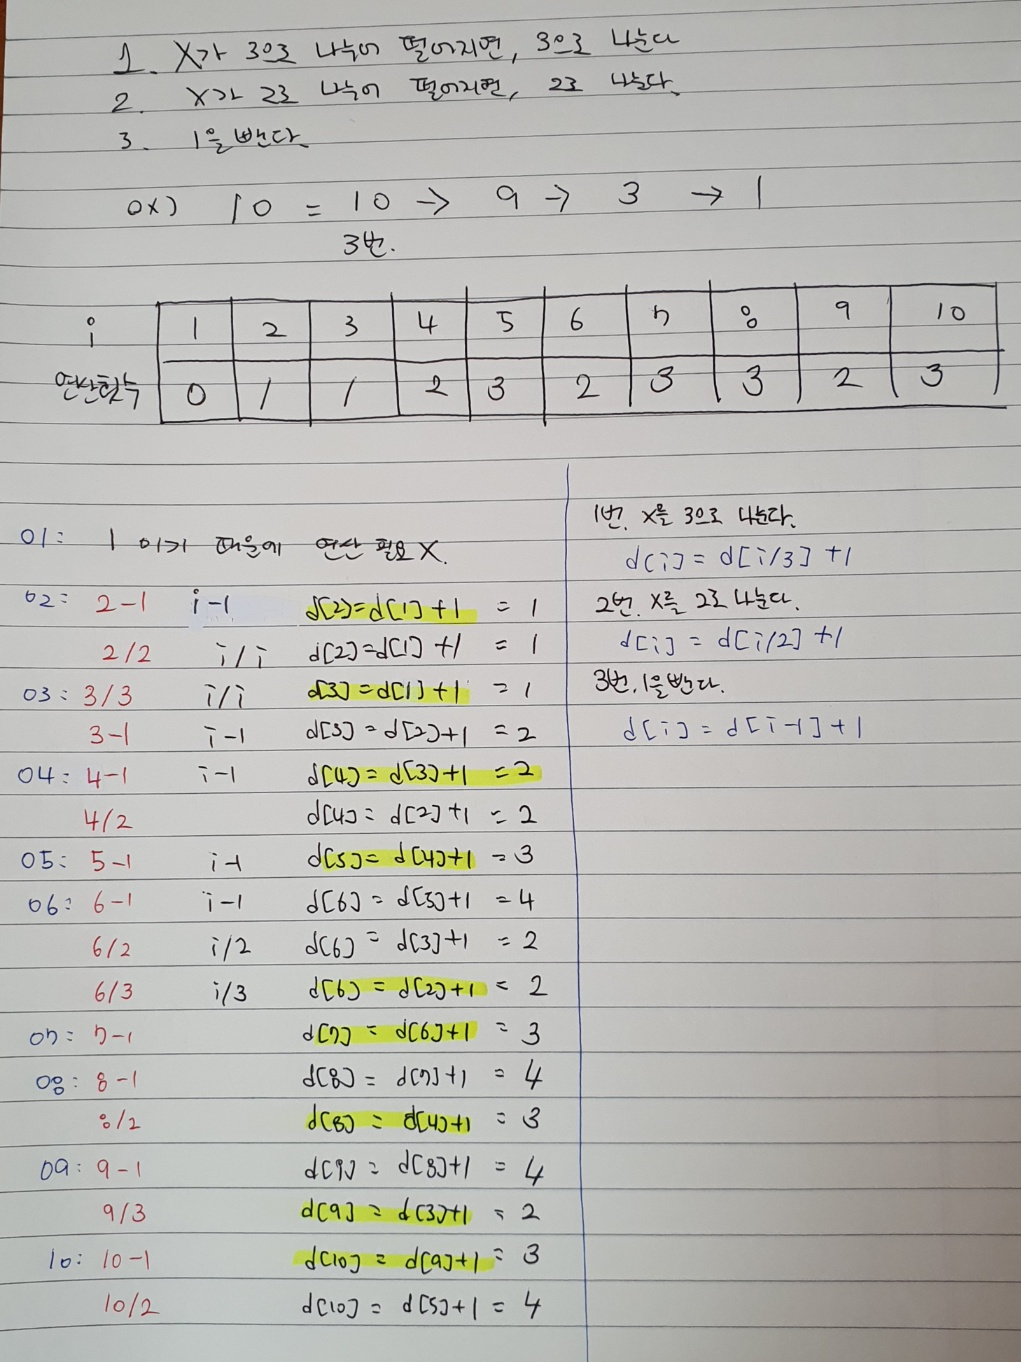 1. X가 3으로 나누어 떨어지면, 3으로 나눈다
2. X가 2로 나누어 떨어지면, 2로 나눈다.
3. 1을 뺀다.
ex) 10 = 10 → 9 → 3 → 1
3번.
i 1 2 3 4 5 6 7 8 9 10
연산횟수 0 1 1 2 3 2 3 3 2 3
01: 1 이기 때문에 연산 필요 X.
02: 2-1 i-1 d[2]=d[1]+1 = 1
2/2 i/i d[2]=d[1]+1 = 1
03: 3/3 i/i d[3]=d[1]+1 = 1
3-1 i-1 d[3]=d[2]+1 = 2
04: 4-1 i-1 d[4]=d[3]+1 = 2
4/2 d[4]=d[2]+1 = 2
05: 5-1 i-1 d[5]=d[4]+1 = 3
06: 6-1 i-1 d[6]=d[5]+1 = 4
6/2 i/2 d[6]=d[3]+1 = 2
6/3 i/3 d[6]=d[2]+1 = 2
07: 7-1 d[7]=d[6]+1 = 3
08: 8-1 d[8]=d[7]+1 = 4
8/2 d[8]=d[4]+1 = 3
09: 9-1 d[9]=d[8]+1 = 4
9/3 d[9]=d[3]+1 = 2
10: 10-1 d[10]=d[9]+1 = 3
10/2 d[10]=d[5]+1 = 4
1번. X를 3으로 나눈다.
d[i]=d[i/3]+1
2번. X를 2로 나눈다.
d[i]=d[i/2]+1
3번. 1을 뺀다.
d[i]=d[i-1]+1